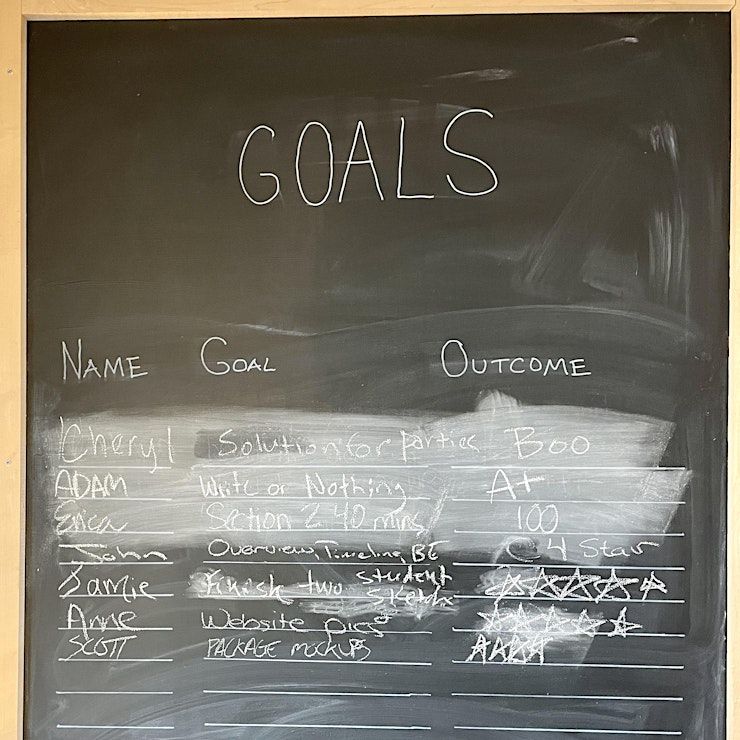 GOALS
NAME GOAL OUTCOME
Cheryl Solution for parties Boo
ADAM Write or Nothing A+
Erica Section 2 40 mins 100
John Overview, Timeline, BE C 4 Star
Jamie Finish two student sketch
Anne Website pics
SCOTT PACKAGE MOCKUPS